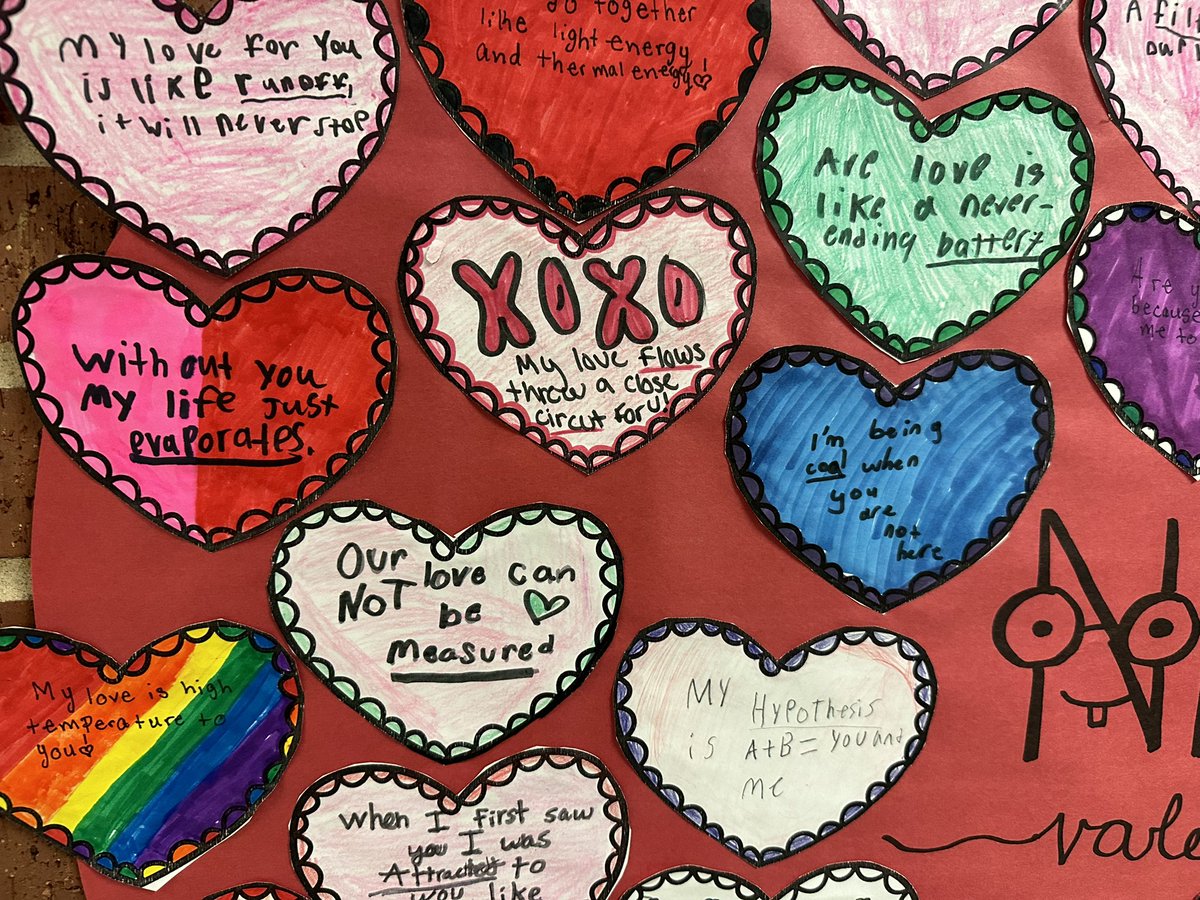 My love for you
is like runoff,
it will never stop
go together
like light energy
and thermal energy!
A fill
our
Are love is
like a never-
ending battery
XOXO
My love flows
threw a close
circut for u!
Are y
because
me to
With out you
My life just
evaporates.
I'm being
coal when
you
are
not
here
Our love can
NOT be
measured
My love is high
temperature to
you!
MY Hypothesis
is A+B= you and
me
When I first saw
you I was
Attracted to
you like
N
vale